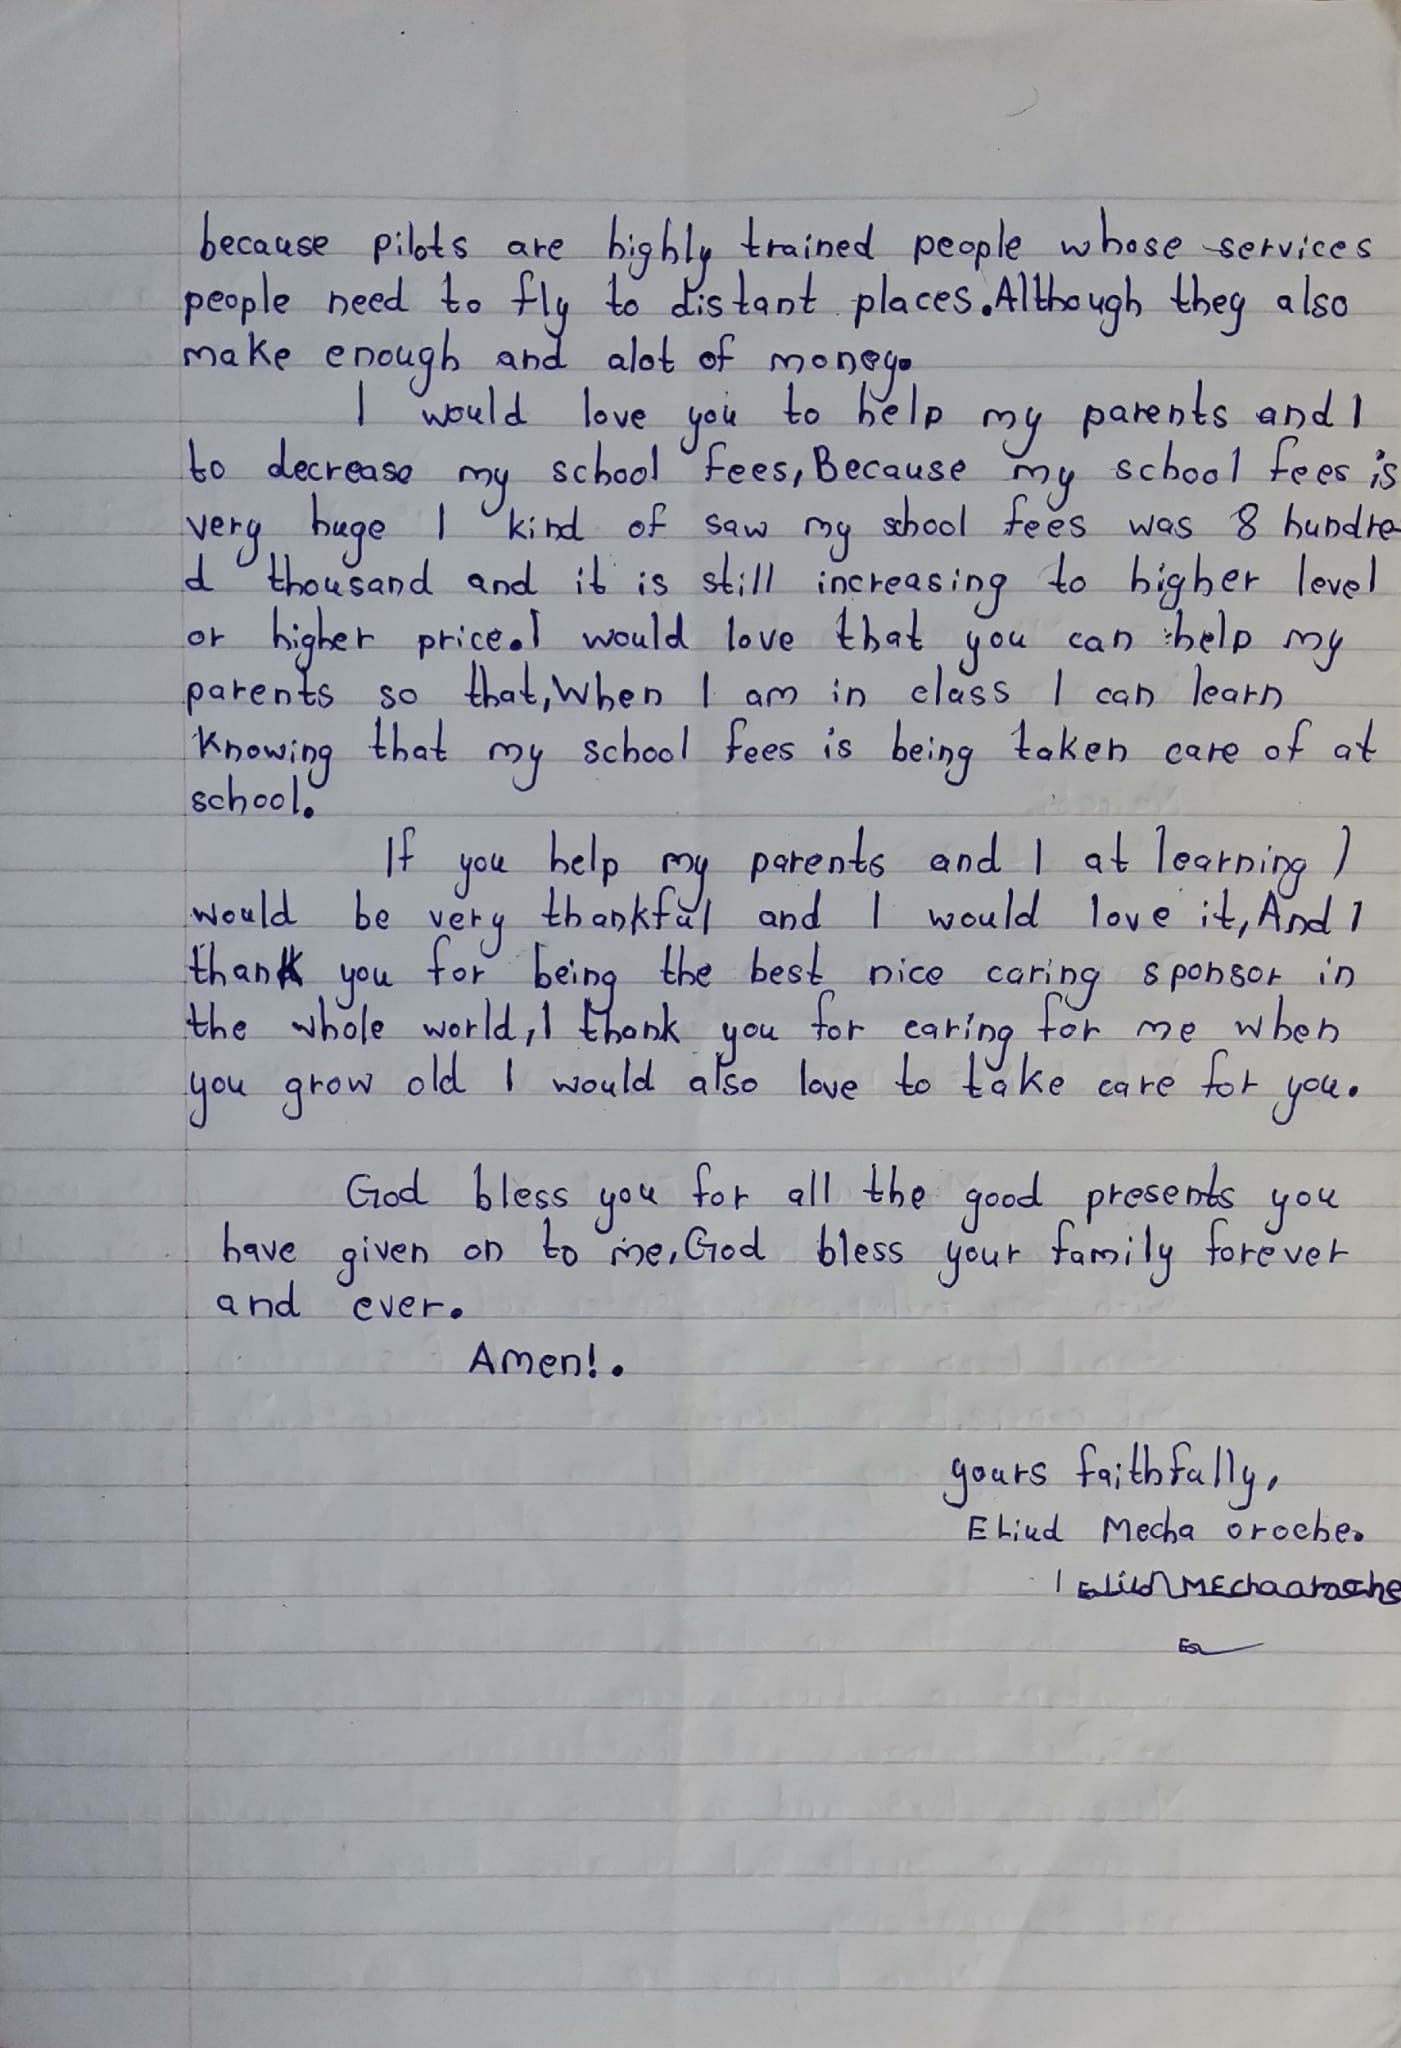 because pilots are highly trained people whose services
people need to fly to distant places.Although they also
make enough and alot of money.
I would love you to help my parents and I
to decrease my school fees,Because my school fees is
very huge I kind of saw my school fees was 8 hundre
d thousand and it is still increasing to higher level
or higher price.I would love that you can help my
parents so that,When I am in class I can learn
Knowing that my school fees is being taken care of at
school.
If you help my parents and I at learning I
would be very thankful and I would love it,And I
thank you for being the best nice caring sponsor in
the whole world,I thank you for caring for me when
you grow old I would also love to take care for you.
God bless you for all the good presents you
have given on to me.God bless your family forever
and ever.
Amen!.
yours faithfully,
Eliud Mecha oroche.